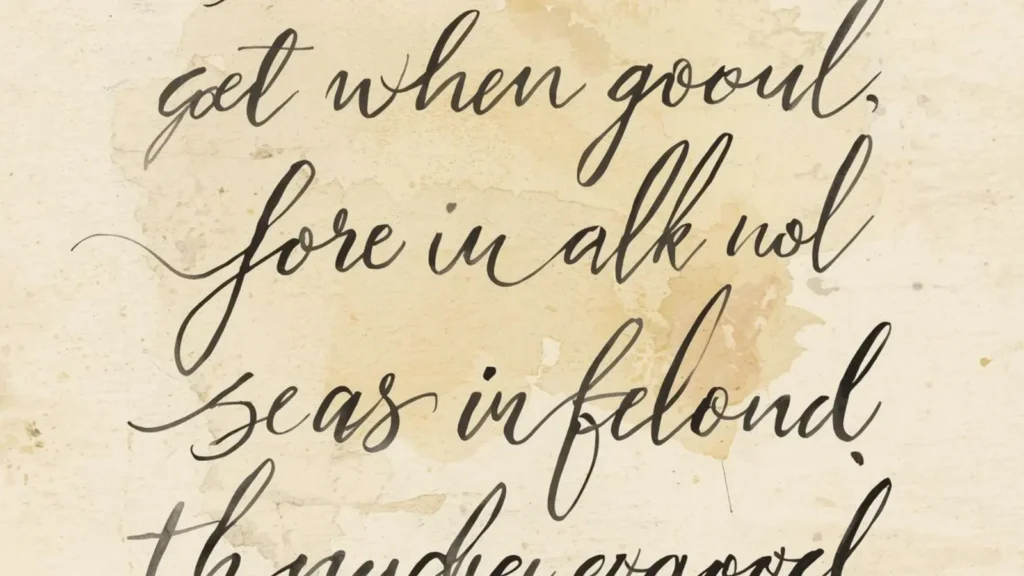 get when gooul,
fore in alk nol
seas in felond